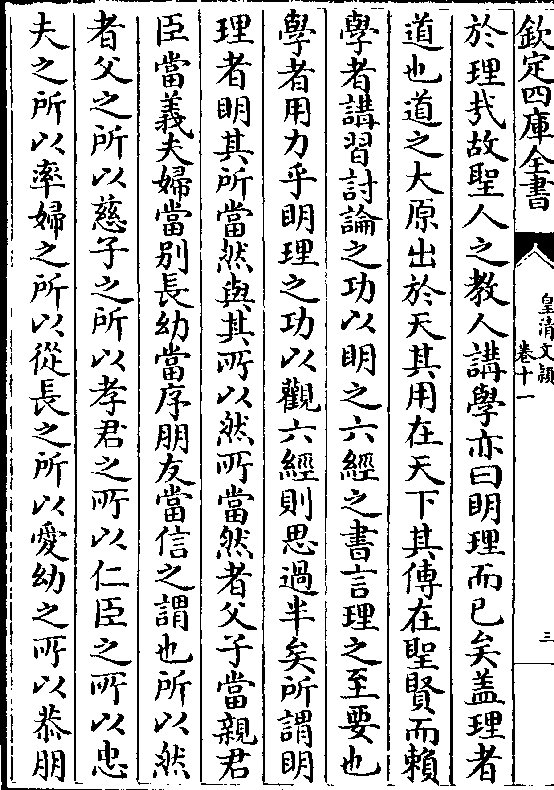 欽定四庫全書
皇清文穎
卷十一
三
於理㢤故聖人之教人講學亦曰明理而已矣盖理者
道也道之大原出於天其用在天下其傳在聖賢而賴
學者講習討論之功以明之六經之書言理之至要也
學者用力乎明理之功以觀六經則思過半矣所謂明
理者明其所當然與其所以然所當然者父子當親君
臣當義夫婦當别長幼當序朋友當信之謂也所以然
者父之所以慈子之所以孝君之所以仁臣之所以忠
夫之所以率婦之所以從長之所以愛幼之所以恭朋